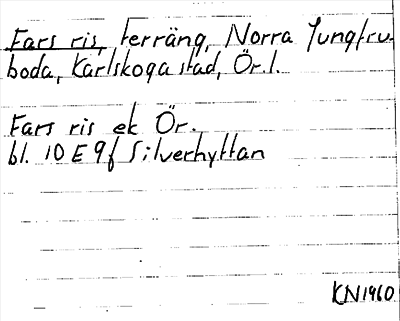 Fars ris, terräng, Norra Jungfru-
boda, Karlskoga stad, Ör.l.
Fars ris ek Ör.
bl. 10 E 9f Silverhyttan
KN1960